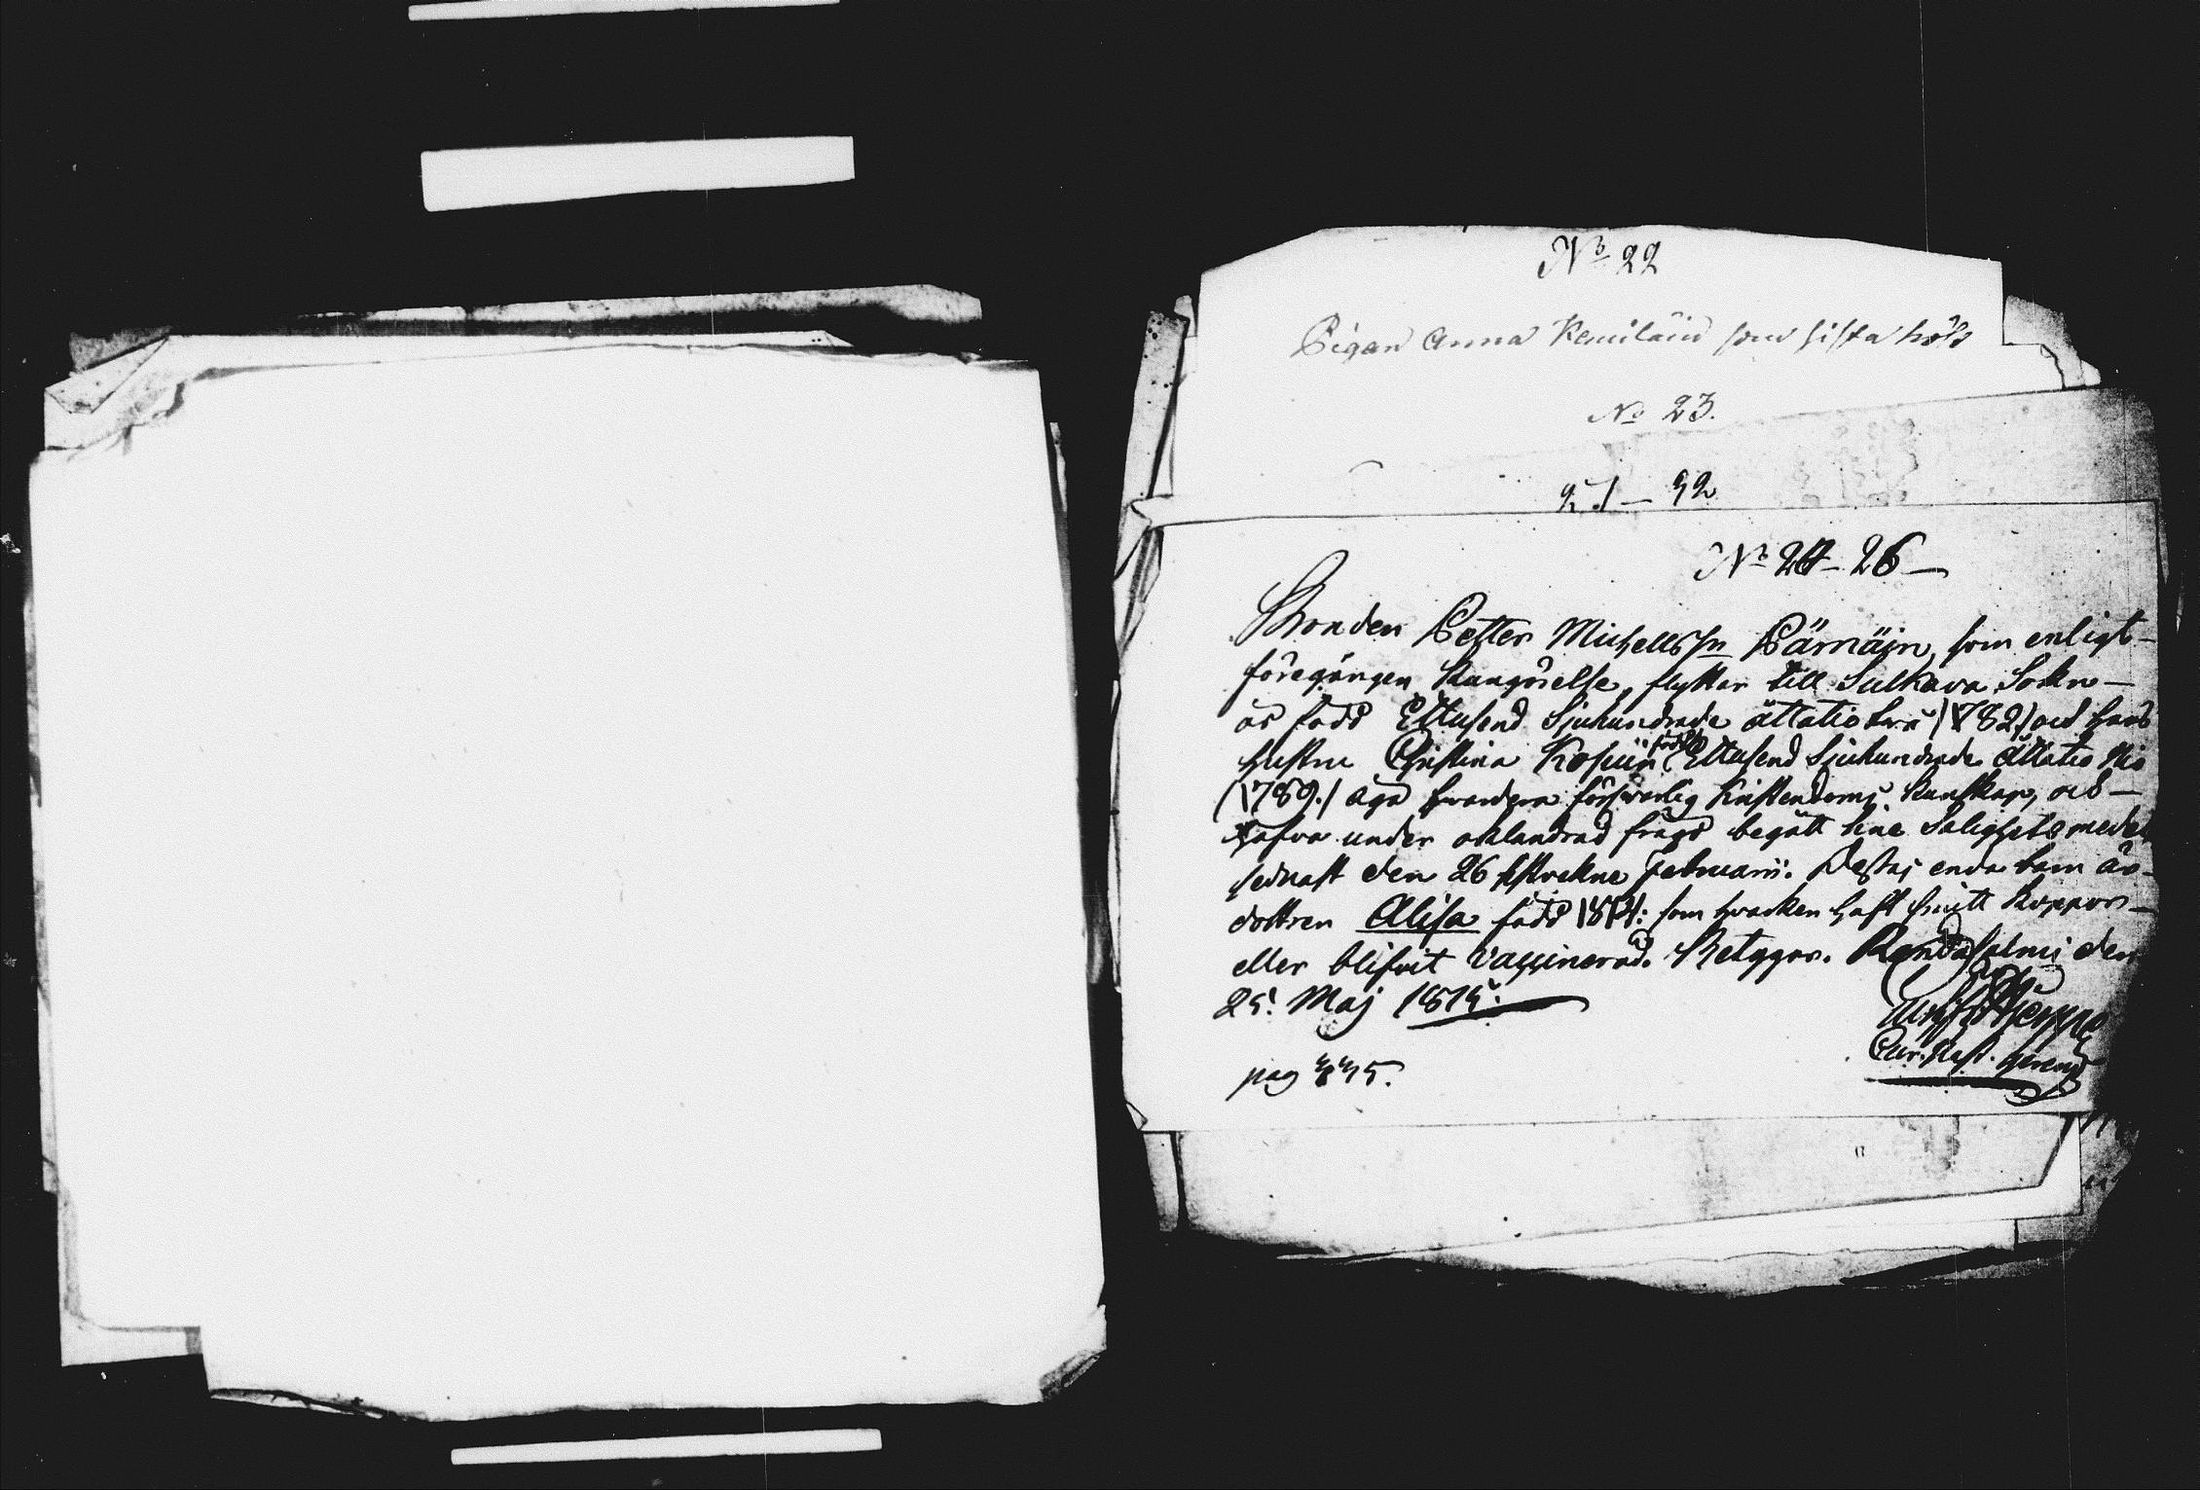 No 22
Pigan Anna Kemiläin som sista höst
No 23.
No 24 - 26 -
Bonden Petter Michellssn Pärnäin, som enligt
föregången Kungörelse, flyttar till Sulkava Sokn -
är född Ettusend Sjuhundrade åttatio två (1782) och hans
hustru Christina Kosuin född Ettusend Sjuhundrade Åttatio Nio
(1789.) äga hvardera försvarlig Kristendoms Kunskap, och -
hafva under oklandrad frägd begått sine Salighets medel
sednast den 26 sistvekne Februarii. Desses enda barn är -
dottren Alisa född 1814: som hvarken haft Koppor -
eller blifvit Vaccinerad. Betygar. Randasalmi den
25 Maj 1815.
Cur. Past. gerens
pag 445.